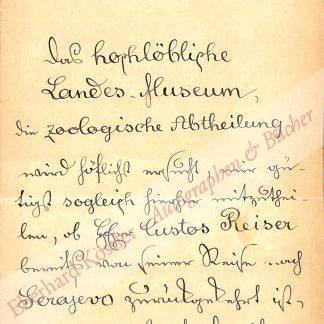 Das hochlöbliche
Landes-Museum,
die zoologische Abtheilung
wird höflichst ersucht, mir gü-
tigst sogleich hierher mitzuthei-
len, ob Herr Custos Reiser
bereits von seiner Reise nach
Serajevo zurückgekehrt ist,
Eberhard Köstler Autographen & Bücher